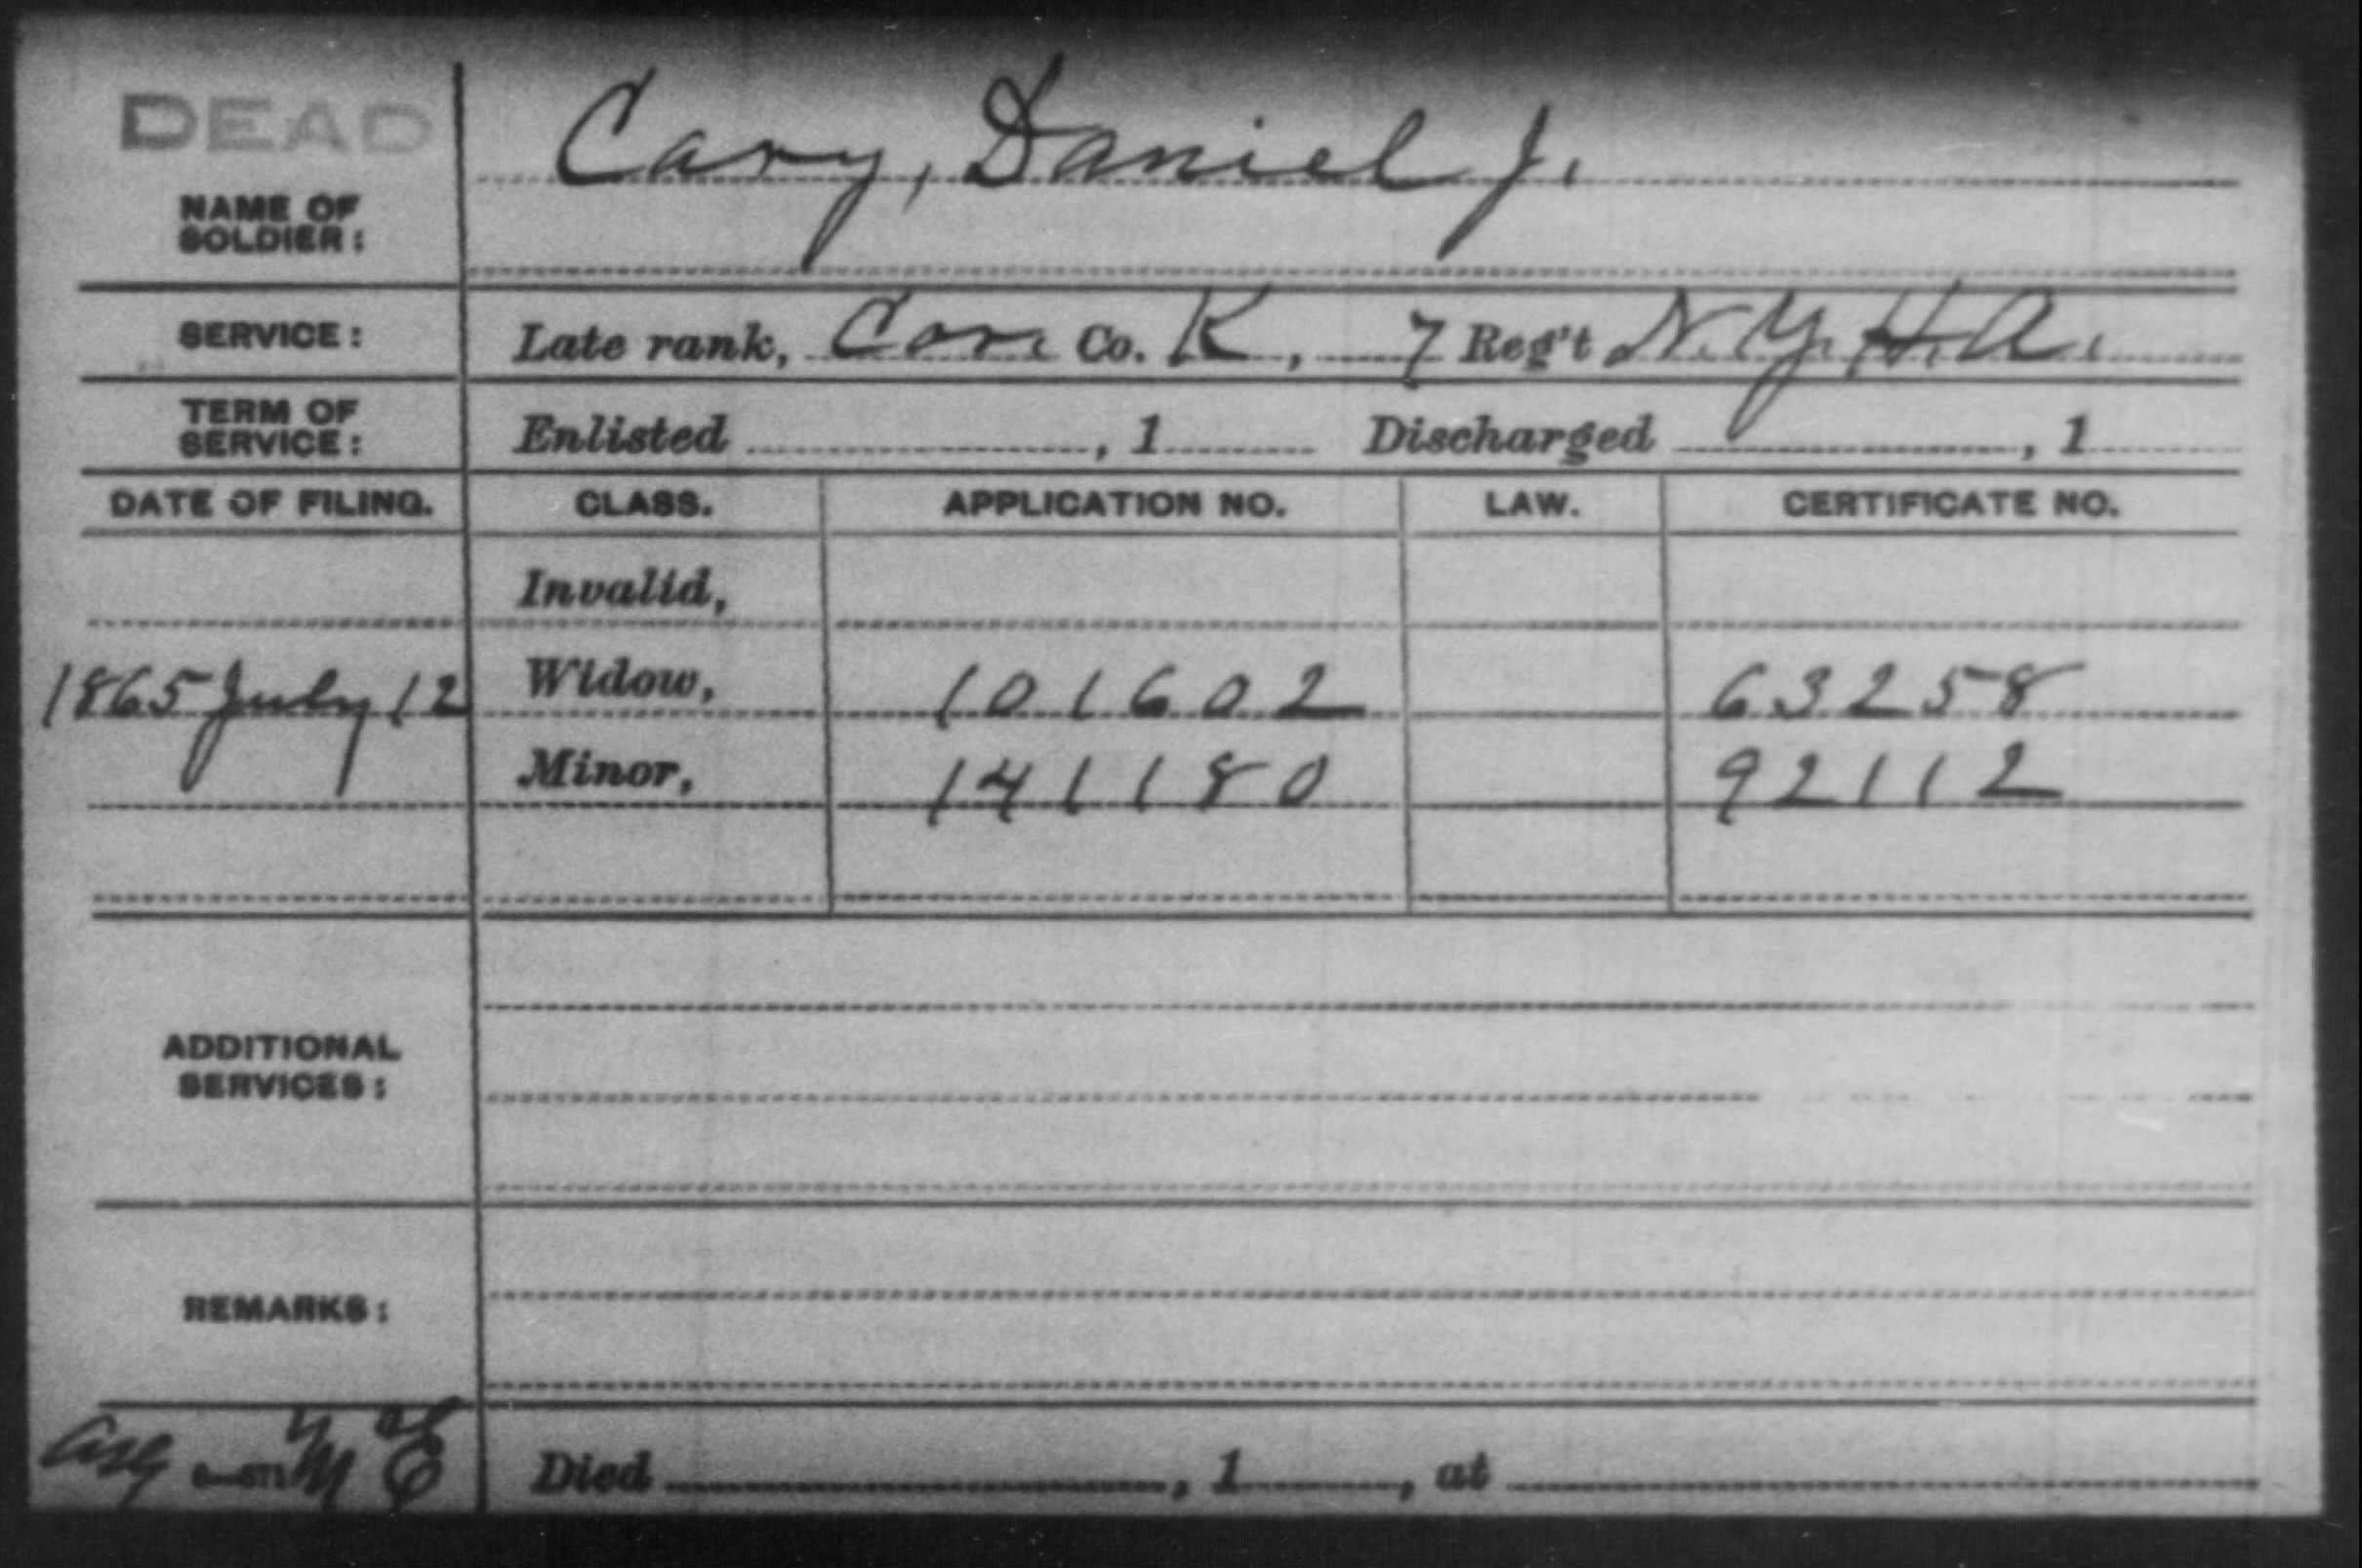 DEAD
NAME OF
SOLDIER:
Cary, Daniel J.
SERVICE: Late rank, Cor. Co. K, 7 Reg't N.Y.H.A.
TERM OF
SERVICE: Enlisted , 1 Discharged , 1
DATE OF FILING. CLASS. APPLICATION NO. LAW. CERTIFICATE NO.
Invalid,
1865 July 12 Widow, 101602 63258
Minor, 141180 92112
ADDITIONAL
SERVICES:
REMARKS:
Died , 1 , at